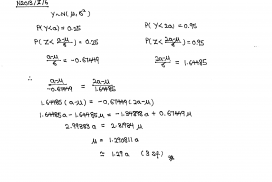 N2013/2/6
Y~N(μ, σ²)
P(Y<a) = 0.25 P(Y<2a) = 0.95
P(Z< a-μ/σ) = 0.25 P(Z< 2a-μ/σ) = 0.95
a-μ/σ = -0.67449 2a-μ/σ = 1.64485
∴ a-μ/-0.67449 = 2a-μ/1.64485
1.64485(a-μ) = -0.67449(2a-μ)
1.64485a - 1.64485μ = -1.34898a + 0.67449μ
2.99383a = 2.31934μ
μ = 1.290811a
≈ 1.29a (3 sf)